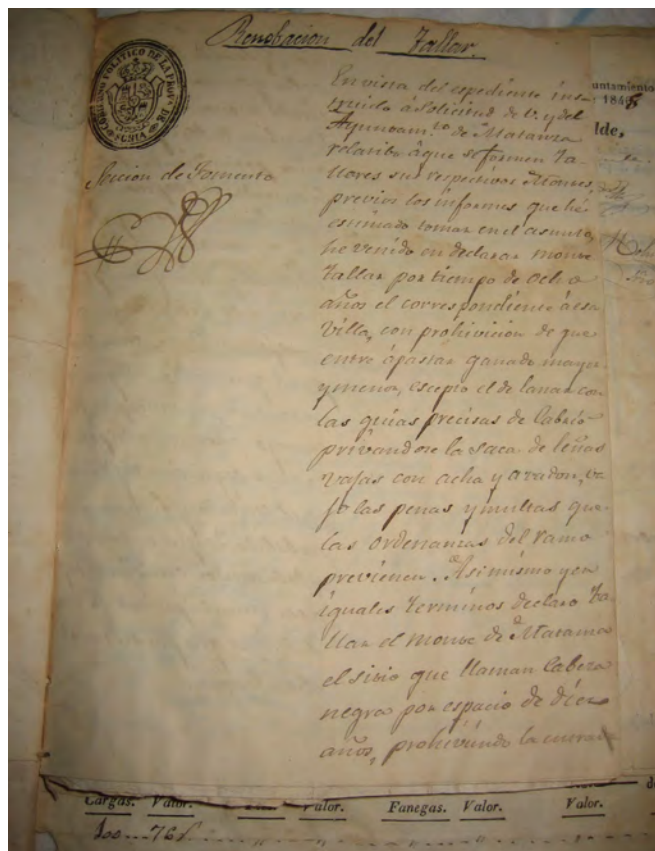 Renobacion del Tallar.
GOBIERNO POLITICO DE LA PROVª DE SORIA
Seccion de Fomento
En vista del espediente ins-
truido á solicitud de V. y del
Ayunoam.to de Matanza
relatibo á que se formen Ta-
llares sus respectivos Montes,
previos los informes que hé
estimado tomar en el asunto,
he venido en declarar monte
tallar por tiempo de ocho
años el correspondiente á esa
Villa, con prohivicion de que
entre á pastar ganado mayor
y menor, escepto el de lanar con
las guias precisas de Cabrio
privandose la saca de leñas
vajas con acha y azadon, va
jo las penas y multas que
las ordenanzas del ramo
previenen. Asi mismo y en
iguales terminos declaro Ta
llar el monte de Matanza
el sitio que llaman Cabeza
negra por espacio de diez
años, prohiviendo la entrada
untamiento
1848
lde,
Cargas. Valor. Valor. Fanegas. Valor. Valor.
100 --- 76